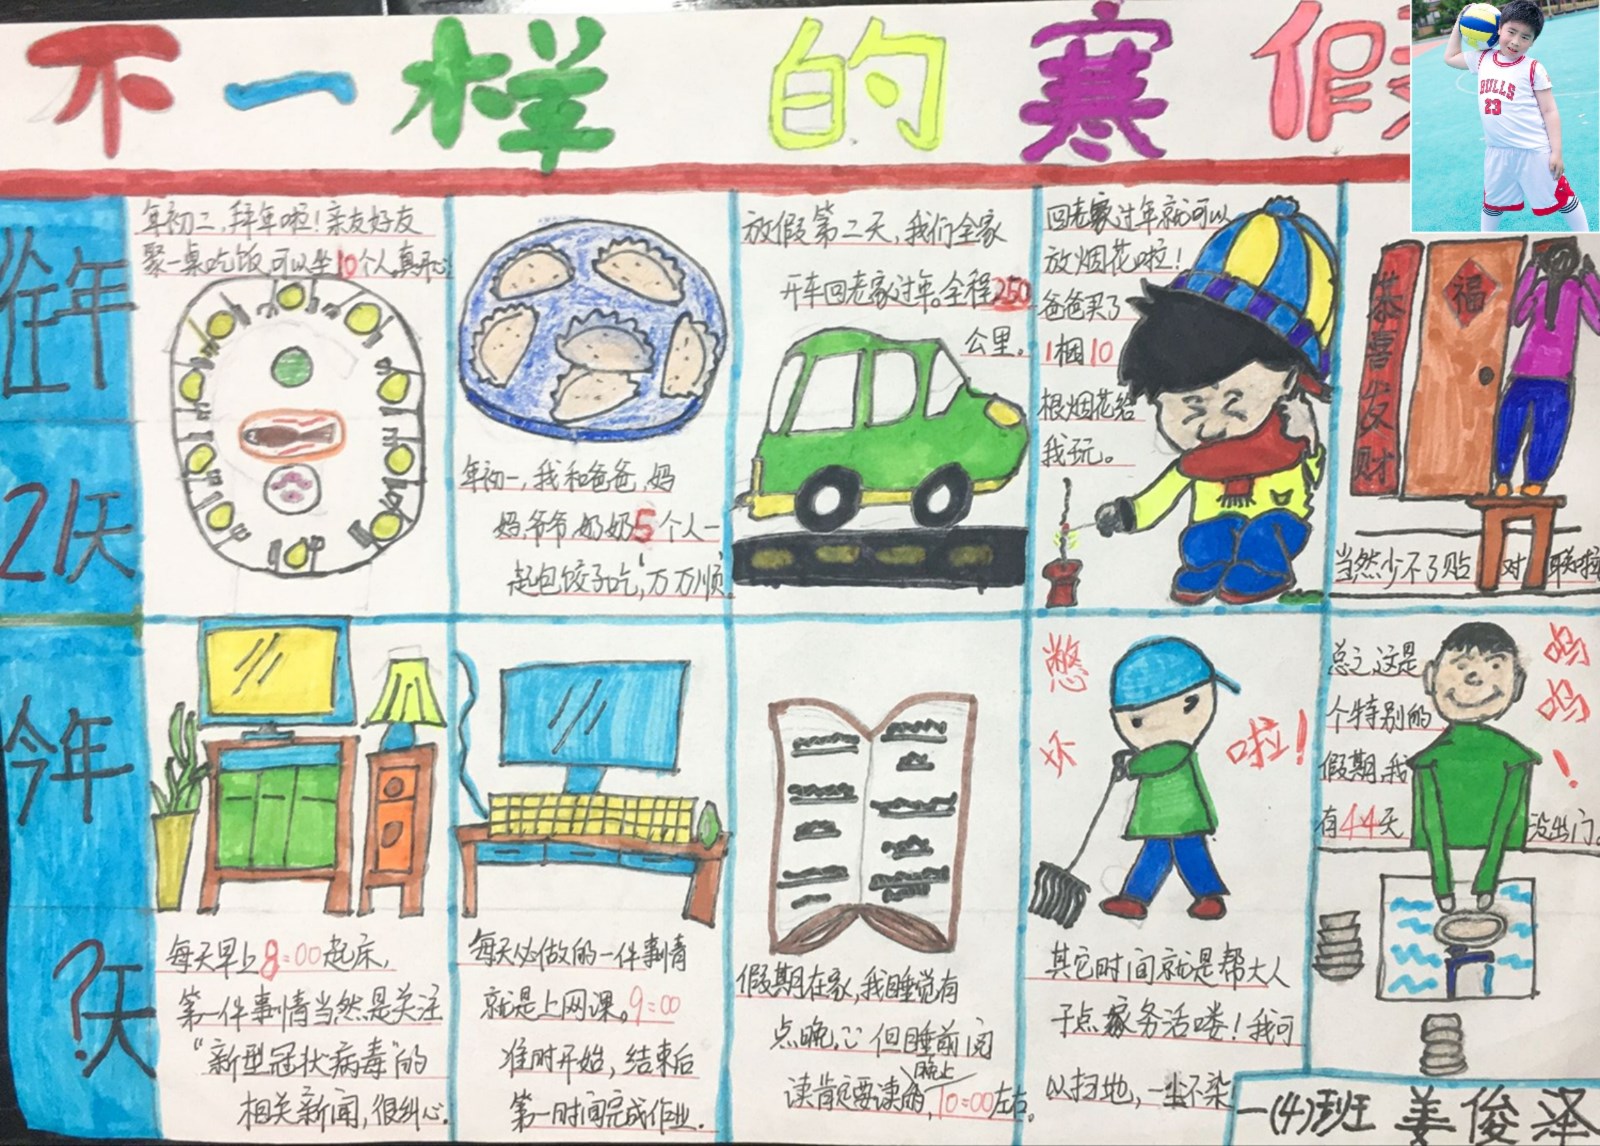 不一样的寒假
BULLS
23
往年
21天
年初二，拜年啦！亲友好友
聚一桌吃饭可以坐10个人真开心
年初一，我和爸爸、妈
妈、爷爷、奶奶5个人一
起包饺子吃，万万顺
放假第二天，我们全家
开车回老家过年。全程250
公里。
回老家过年就可以
放烟花啦！
爸爸买了
1捆10
根烟花给
我玩。
恭喜发财
福
当然少不了贴对联啦
今年
?天
每天早上8:00起床，
第一件事情当然是关注
"新型冠状病毒"的
相关新闻，很纠心.
每天必做的一件事情
就是上网课。9:00
准时开始，结束后
第一时间完成作业.
假期在家，我睡觉有
点晚，但睡前阅
读肯定要读的，晚上10:00左右。
憋坏啦！
其它时间就是帮大人
干点家务活喽！我可
以扫地，一尘不染
总之，这是
个特别的
假期，我
有44天没出门。
呜呜！
一(4)班 姜俊泽